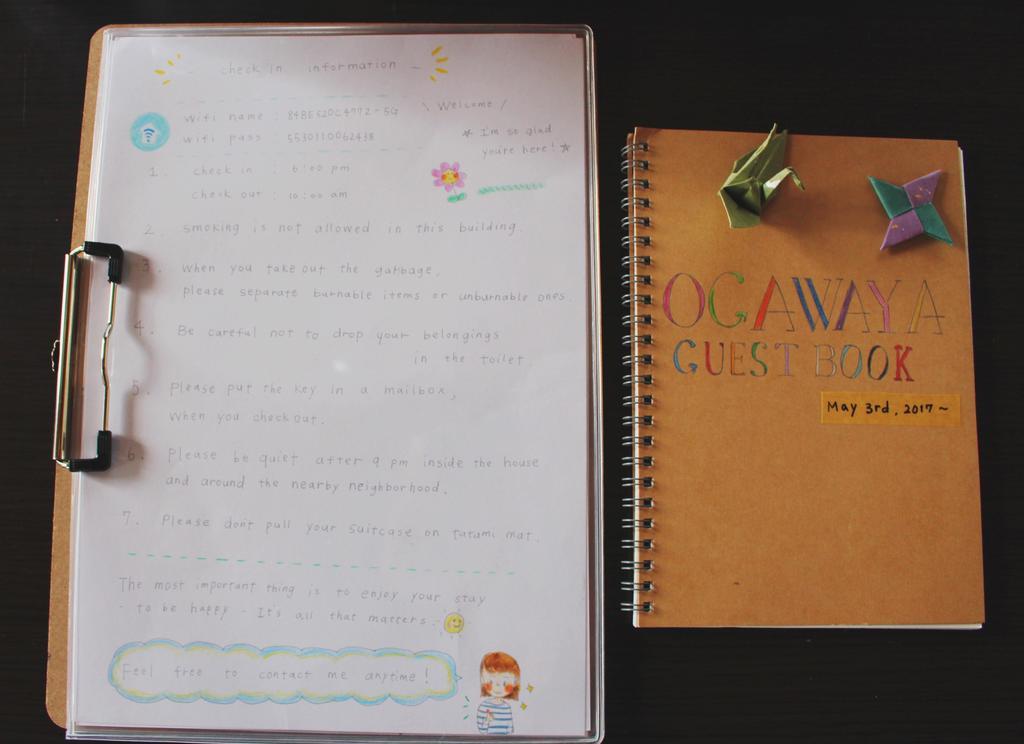 - check in information -
wifi name : 84BE520C4972-5G
wifi pass : 5530110062438
\ Welcome /
★ I'm so glad
you're here! ★
1. check in : 6:00 pm
check out : 10:00 am
2. smoking is not allowed in this building.
3. When you take out the garbage,
please separate burnable items or unburnable ones.
4. Be careful not to drop your belongings
in the toilet
5. Please put the key in a mailbox,
When you check out.
6. Please be quiet after 9 pm inside the house
and around the nearby neighborhood.
7. Please don't pull your suitcase on tatami mat.
The most important thing is to enjoy your stay
- to be happy - It's all that matters.
Feel free to contact me anytime!
OGAWAYA
GUEST BOOK
May 3rd, 2017 ~